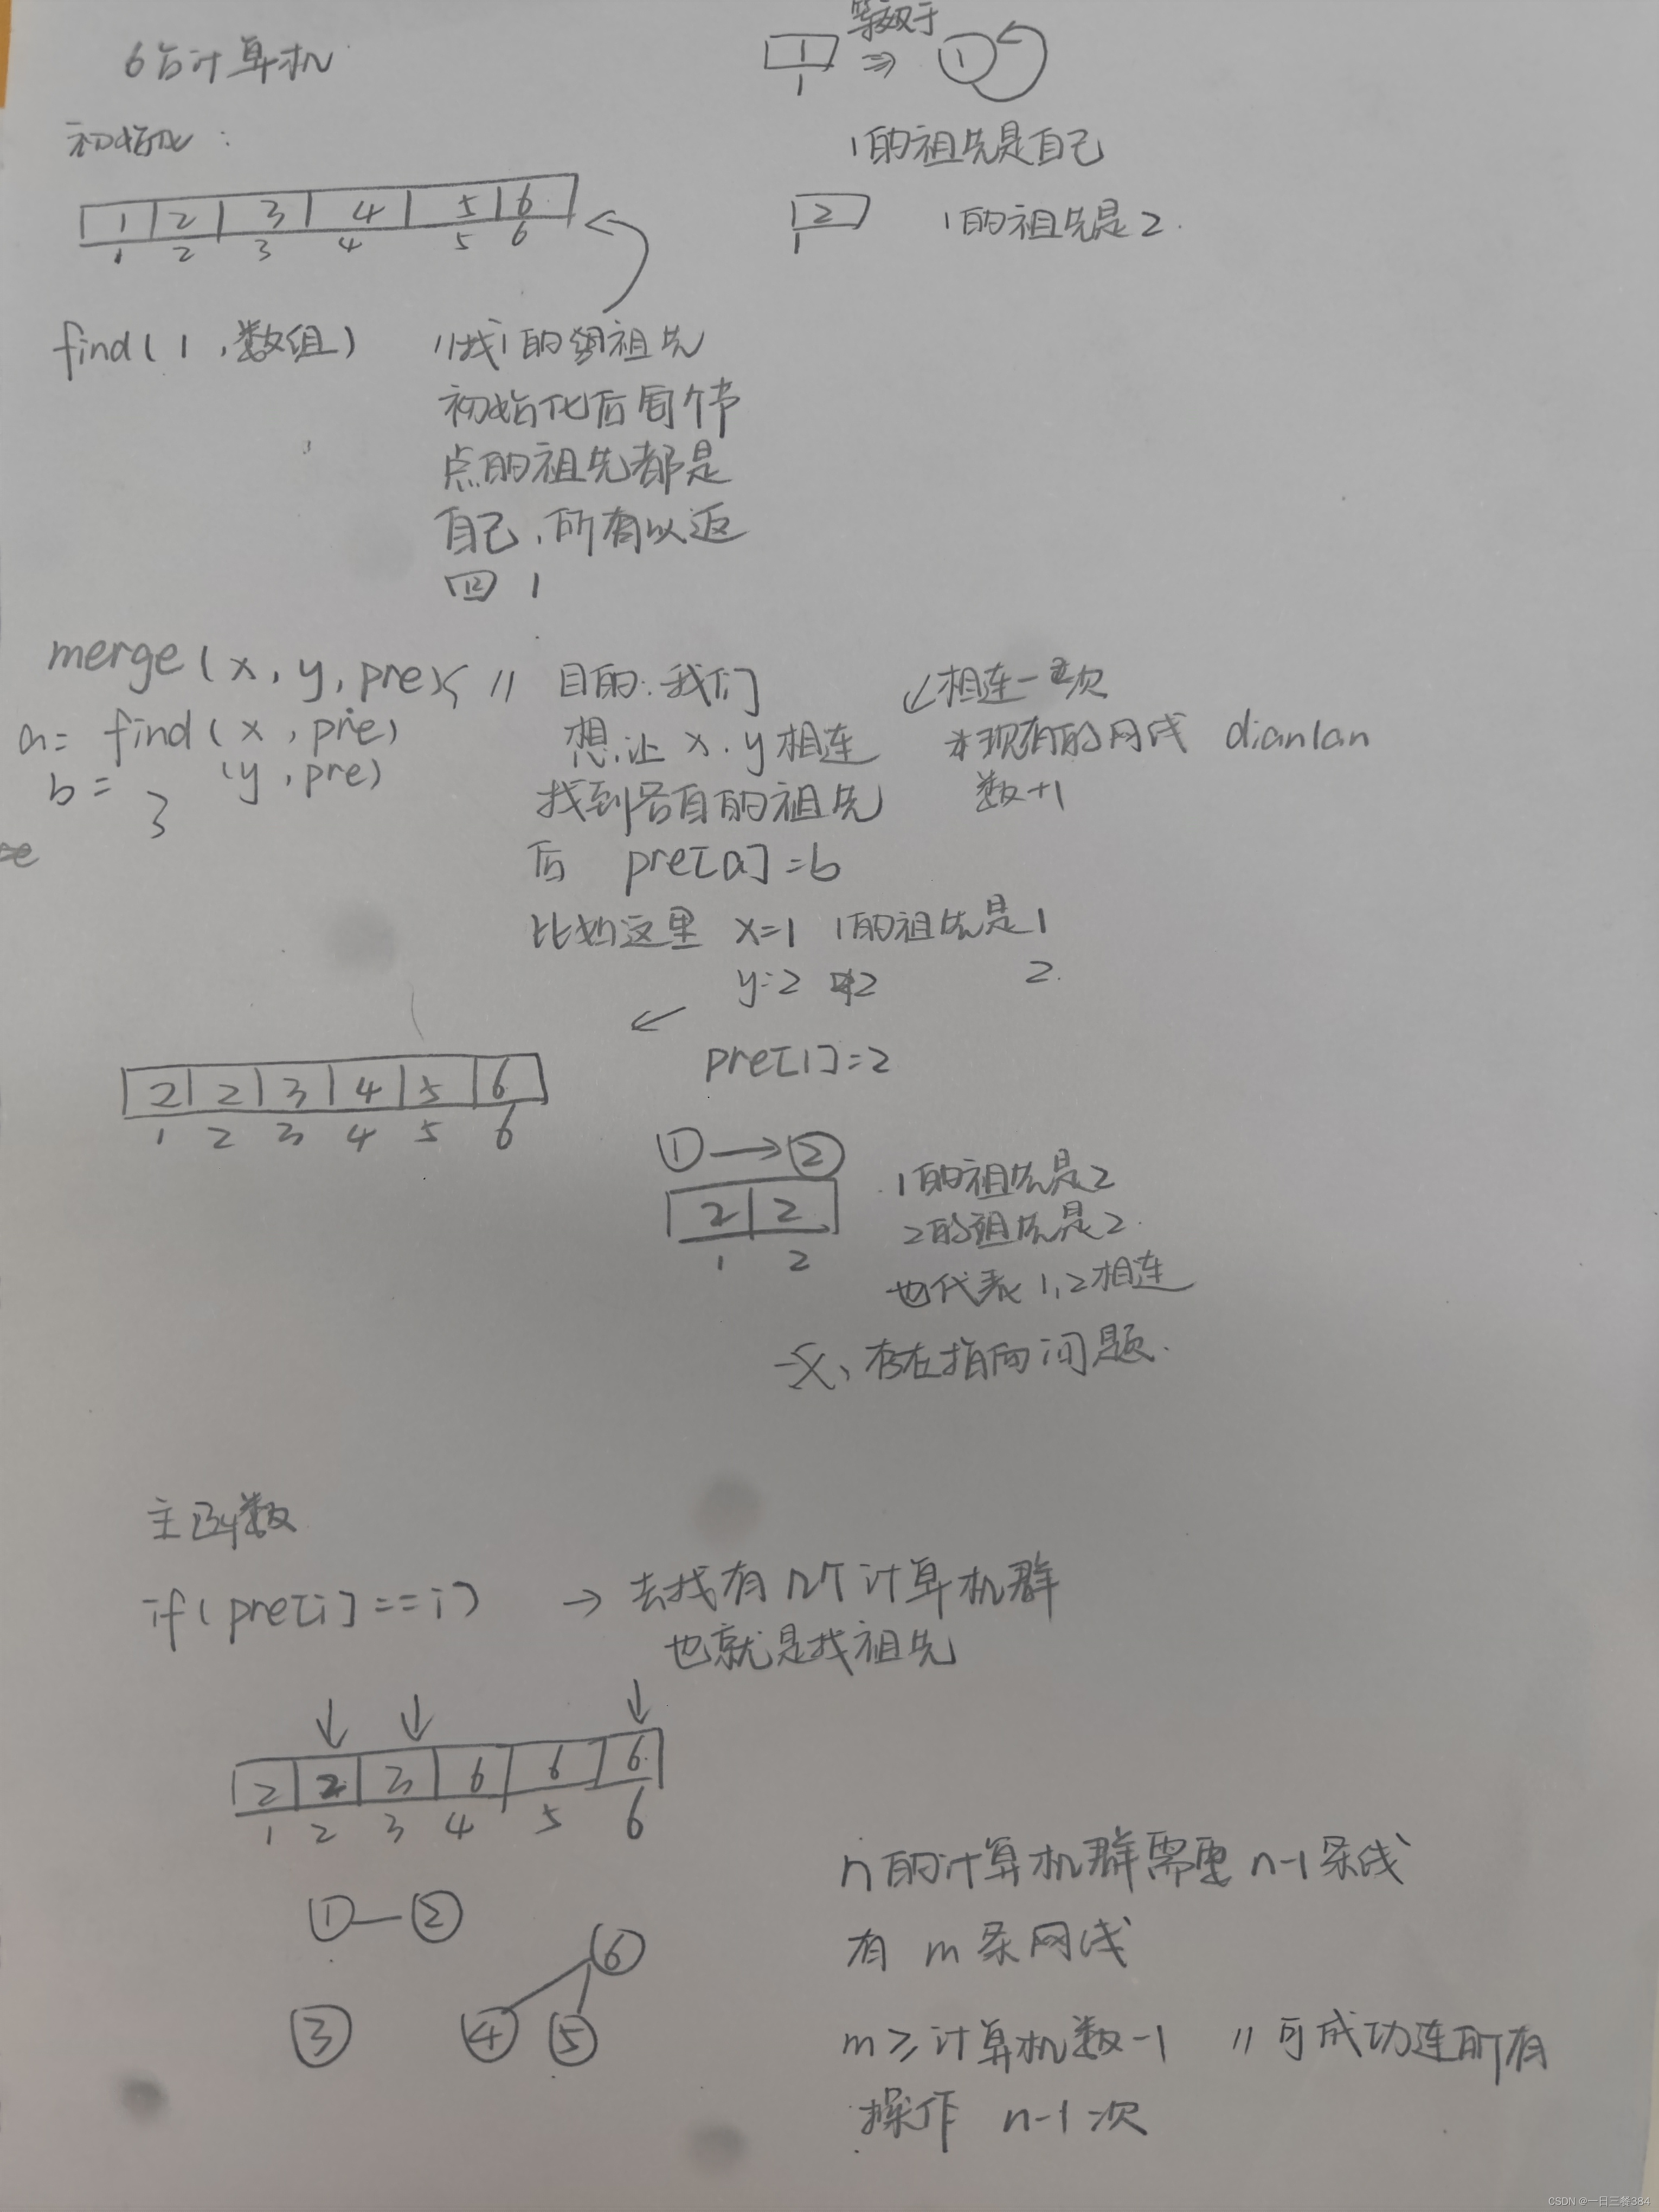 6台计算机
等效于
1
⇒ ①
1
初始化：
1的祖先是自己
1 2 3 4 5 6
1 2 3 4 5 6
2
1
1的祖先是2.
find(1,数组) //找1的祖先
初始化后每个节
点的祖先都是
自己,所有以返
回 1
merge(x,y,pre){ // 目的:我们
想让 x.y相连
找到各自的祖先
后 pre[a]=b
a= find(x,pre)
b= (y,pre)
}
↙相连一次
现有的网线 dianlan
数+1
比如这里 x=1 1的祖先是1
y=2 2 2.
pre[1]=2
2 2 3 4 5 6
1 2 3 4 5 6
①→②
2 2
1 2
1的祖先是2
2的祖先是2.
也代表1,2相连
存在指向问题.
主函数
if(pre[i]==i) → 去找有几个计算机群
也就是找祖先
↓ ↓ ↓
2 2 3 6 6 6
1 2 3 4 5 6
①—②
⑥
③ ④ ⑤
n的计算机群需要 n-1条线
有 m条网线
m≥计算机数-1 //可成功连所有
操作 n-1次
CSDN @一日三餐384